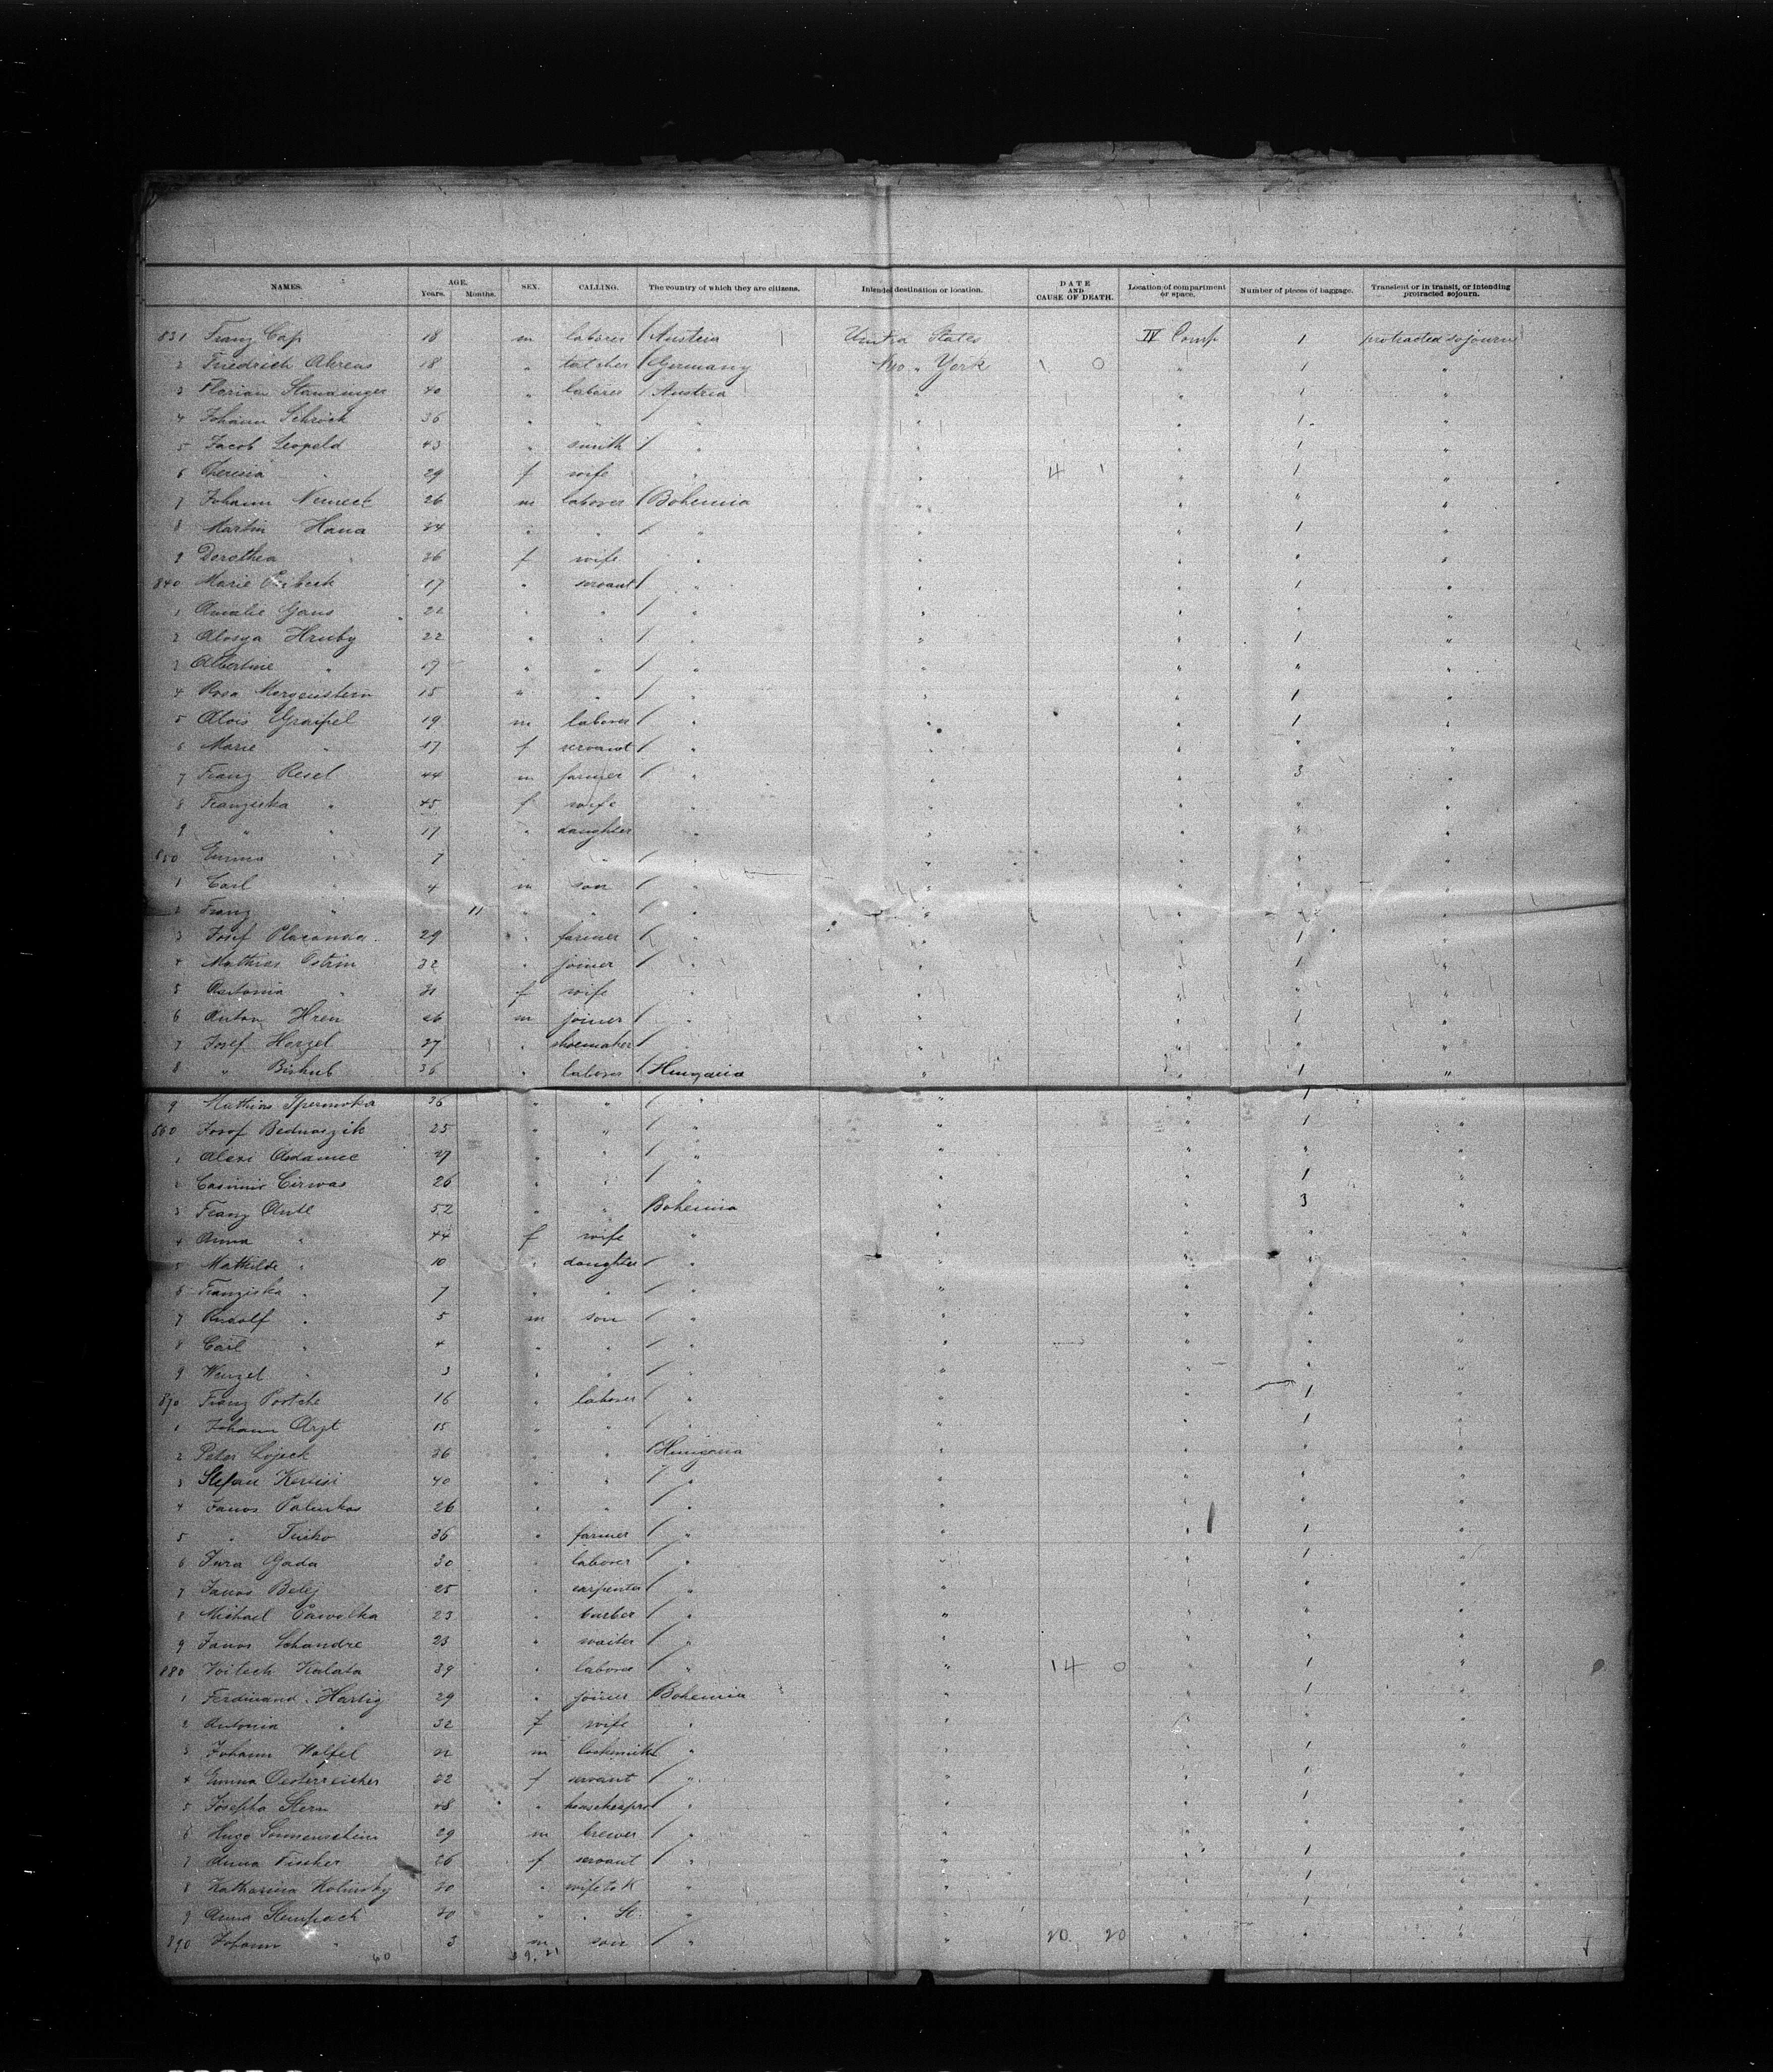 NAMES. AGE. SEX. CALLING. The country of which they are citizens. Intended destination or location. DATE AND CAUSE OF DEATH. Location of compartment or space. Number of pieces of baggage. Transient or in transit, or intending protracted sojourn.
Years. Months.
831 Franz Cap 18 m laborer / Austria United States IV Comp 1 protracted sojourn
2 Friedrich Ahrens 18 " / Germany New " York 1 "
3 Florian 40 " laborer / Austria " " 1 "
4 Johann Schröck 36 " " " " " 1 "
5 Jacob Leopold 43 " smith / " " " 1 "
6 Theresia " 29 f wife " " 4 1 " 1 "
7 Johann 26 m laborer / Bohemia " " " "
8 Martin Hana 34 " " / " " " 1 "
9 Dorothea " 26 f wife " " " " "
840 Marie 17 " servant / " " " 1 "
1 Amalie Gans 22 " " / " " " " "
2 Alosya Hruby 22 " " / " " " 1 "
3 Albertine " 17 " " / " " " " "
4 Rosa Morgenstern 15 " " / " " " 1 "
5 Alois Graipel 19 m laborer / " " " 1 "
6 Marie " 17 f servant / " " " " "
7 Franz Resel 44 m farmer / " " " 3 "
8 Franziska " 45 f wife " " " " "
9 " " 17 " daughter " " " " "
850 Emma " 7 " " / " " " " "
1 Carl " 4 m son / " " " " "
2 Franz " 11 " " / " " " " "
3 Josef 29 " farmer / " " " 1 "
4 Mathias 32 " joiner / " " " 1 "
5 Antonia " 31 f wife " " " " "
6 Anton Hren 26 m joiner / " " " 1 "
7 Josef Herzel 27 " shoemaker / " " " " "
8 " Biskub 36 " laborer / Hungaria " " 1 "
9 Mathias 36 " " / " " " 1 "
860 Josef Bednarzik 25 " " / " " " 1 "
1 Alexi Adamec 27 " " / " " " " "
2 Casimir Cirwas 26 " " / " " " 1 "
3 Franz Antl 52 " " Bohemia " " 3 "
4 Anna " 44 f wife " " " " "
5 Mathilde " 10 " daughter / " " " " "
6 Franziska " 7 " " / " " " " "
7 Rudolf " 5 m son / " " " " "
8 Carl " 4 " " / " " " " "
9 Wenzel " 3 " " / " " " " "
870 Franz 16 " laborer / " " " 1 "
1 Johann Arzt 15 " " / " " " 1 "
2 Peter 36 " " / Hungaria " " " "
3 Stefan 40 " " / " " " " "
4 Janos Palenkas 26 " " / " " " " "
5 " 36 " farmer / " " " 1 "
6 Jura Gada 30 " laborer / " " " 1 "
7 Janos Belej 25 " carpenter / " " " " "
8 Michael Pawolka 23 " barber / " " " " "
9 Janos Schandre 23 " waiter / " " " " "
880 Voitech Kalata 39 " laborer / " " 14 0 " 1 "
1 Ferdinand Hartig 29 " joiner / Bohemia " " 1 "
2 Antonia " 32 f wife " " " " "
3 Johann Wolfel m locksmith / " " " 1 "
4 Emma Oesterreicher 22 f servant / " " " 1 "
5 Josepha Stern 48 " / " " " 1 "
6 Hugo Sonnenschein 29 m brewer / " " " " "
7 Anna Fischer 26 f servant / " " " 1 "
8 Katharina Kolinsky 30 " wife to K " " " 1 "
9 Anna Stempach 30 " " St. " " " 1 "
890 Johann " 3 m son / " " 20. 20 " " "
60 39. 21